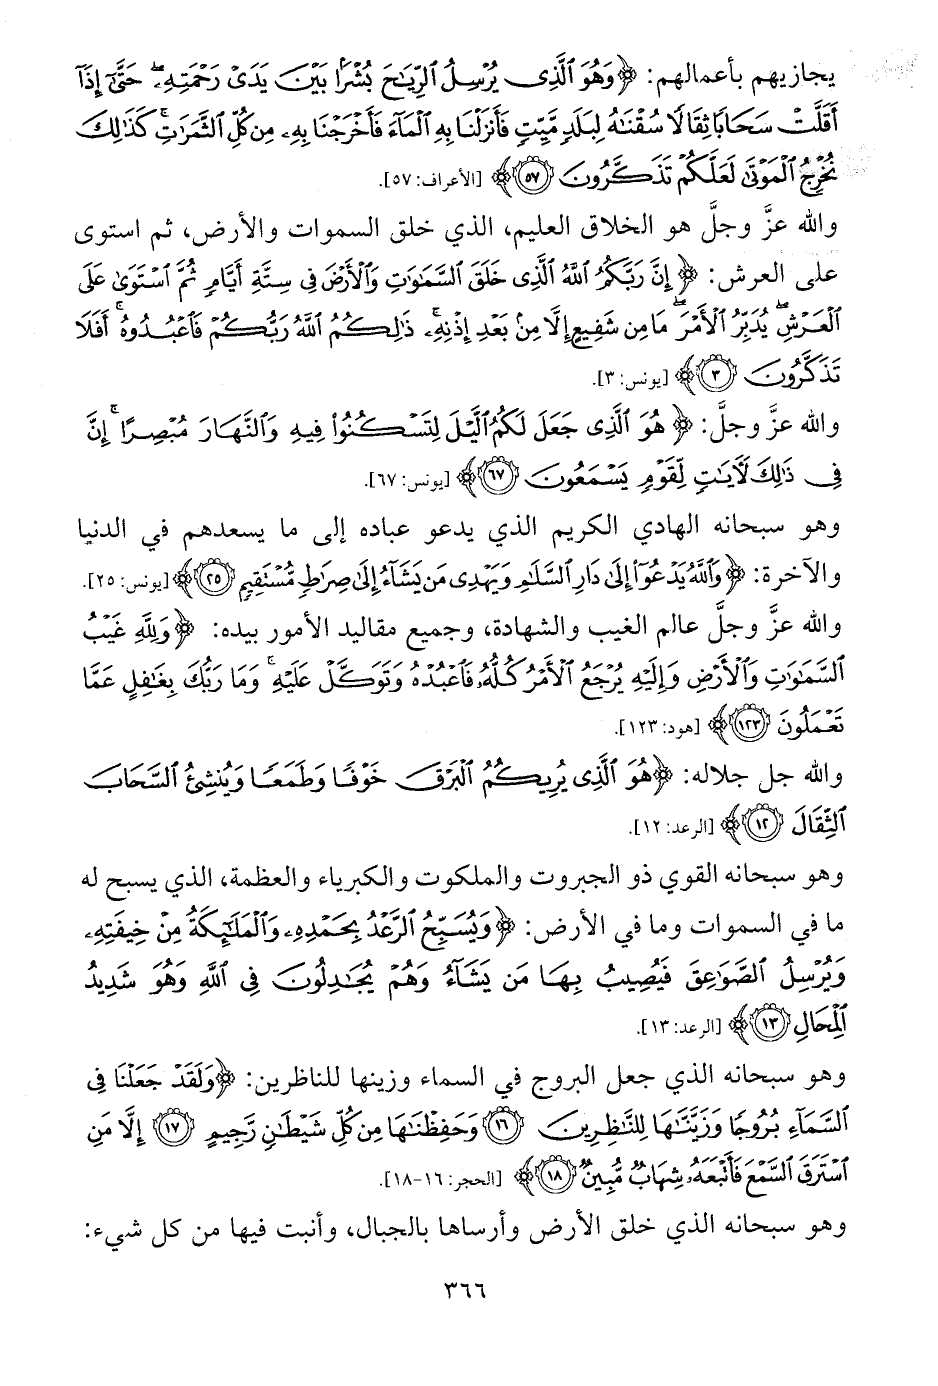 يجازيهم بأعمالهم: ﴿وَهُوَ ٱلَّذِى يُرْسِلُ ٱلرِّيَٰحَ بُشْرًۢا بَيْنَ يَدَىْ رَحْمَتِهِۦ ۖ حَتَّىٰٓ إِذَآ
أَقَلَّتْ سَحَابًا ثِقَالًا سُقْنَٰهُ لِبَلَدٍ مَّيِّتٍ فَأَنزَلْنَا بِهِ ٱلْمَآءَ فَأَخْرَجْنَا بِهِۦ مِن كُلِّ ٱلثَّمَرَٰتِ ۚ كَذَٰلِكَ
نُخْرِجُ ٱلْمَوْتَىٰ لَعَلَّكُمْ تَذَكَّرُونَ ٥٧﴾ [الأعراف: ٥٧].
والله عزَّ وجلَّ هو الخلاق العليم، الذي خلق السموات والأرض، ثم استوى
على العرش: ﴿إِنَّ رَبَّكُمُ ٱللَّهُ ٱلَّذِى خَلَقَ ٱلسَّمَٰوَٰتِ وَٱلْأَرْضَ فِى سِتَّةِ أَيَّامٍ ثُمَّ ٱسْتَوَىٰ عَلَى
ٱلْعَرْشِ ۖ يُدَبِّرُ ٱلْأَمْرَ ۖ مَا مِن شَفِيعٍ إِلَّا مِنۢ بَعْدِ إِذْنِهِۦ ۚ ذَٰلِكُمُ ٱللَّهُ رَبُّكُمْ فَٱعْبُدُوهُ ۚ أَفَلَا
تَذَكَّرُونَ ٣﴾ [يونس: ٣].
والله عزَّ وجلَّ: ﴿هُوَ ٱلَّذِى جَعَلَ لَكُمُ ٱلَّيْلَ لِتَسْكُنُوا۟ فِيهِ وَٱلنَّهَارَ مُبْصِرًا ۚ إِنَّ
فِى ذَٰلِكَ لَءَايَٰتٍ لِّقَوْمٍ يَسْمَعُونَ ٦٧﴾ [يونس: ٦٧].
وهو سبحانه الهادي الكريم الذي يدعو عباده إلى ما يسعدهم في الدنيا
والآخرة: ﴿وَٱللَّهُ يَدْعُوٓا۟ إِلَىٰ دَارِ ٱلسَّلَٰمِ وَيَهْدِى مَن يَشَآءُ إِلَىٰ صِرَٰطٍ مُّسْتَقِيمٍ ٢٥﴾ [يونس: ٢٥].
والله عزَّ وجلَّ عالم الغيب والشهادة، وجميع مقاليد الأمور بيده: ﴿وَلِلَّهِ غَيْبُ
ٱلسَّمَٰوَٰتِ وَٱلْأَرْضِ وَإِلَيْهِ يُرْجَعُ ٱلْأَمْرُ كُلُّهُۥ فَٱعْبُدْهُ وَتَوَكَّلْ عَلَيْهِ ۚ وَمَا رَبُّكَ بِغَٰفِلٍ عَمَّا
تَعْمَلُونَ ١٢٣﴾ [هود: ١٢٣].
والله جل جلاله: ﴿هُوَ ٱلَّذِى يُرِيكُمُ ٱلْبَرْقَ خَوْفًا وَطَمَعًا وَيُنشِئُ ٱلسَّحَابَ
ٱلثِّقَالَ ١٢﴾ [الرعد: ١٢].
وهو سبحانه القوي ذو الجبروت والملكوت والكبرياء والعظمة، الذي يسبح له
ما في السموات وما في الأرض: ﴿وَيُسَبِّحُ ٱلرَّعْدُ بِحَمْدِهِۦ وَٱلْمَلَٰٓئِكَةُ مِنْ خِيفَتِهِۦ
وَيُرْسِلُ ٱلصَّوَٰعِقَ فَيُصِيبُ بِهَا مَن يَشَآءُ وَهُمْ يُجَٰدِلُونَ فِى ٱللَّهِ وَهُوَ شَدِيدُ
ٱلْمِحَالِ ١٣﴾ [الرعد: ١٣].
وهو سبحانه الذي جعل البروج في السماء وزينها للناظرين: ﴿وَلَقَدْ جَعَلْنَا فِى
ٱلسَّمَآءِ بُرُوجًا وَزَيَّنَّٰهَا لِلنَّٰظِرِينَ ١٦ وَحَفِظْنَٰهَا مِن كُلِّ شَيْطَٰنٍ رَّجِيمٍ ١٧ إِلَّا مَنِ
ٱسْتَرَقَ ٱلسَّمْعَ فَأَتْبَعَهُۥ شِهَابٌ مُّبِينٌ ١٨﴾ [الحجر: ١٦-١٨].
وهو سبحانه الذي خلق الأرض وأرساها بالجبال، وأنبت فيها من كل شيء:
٣٦٦